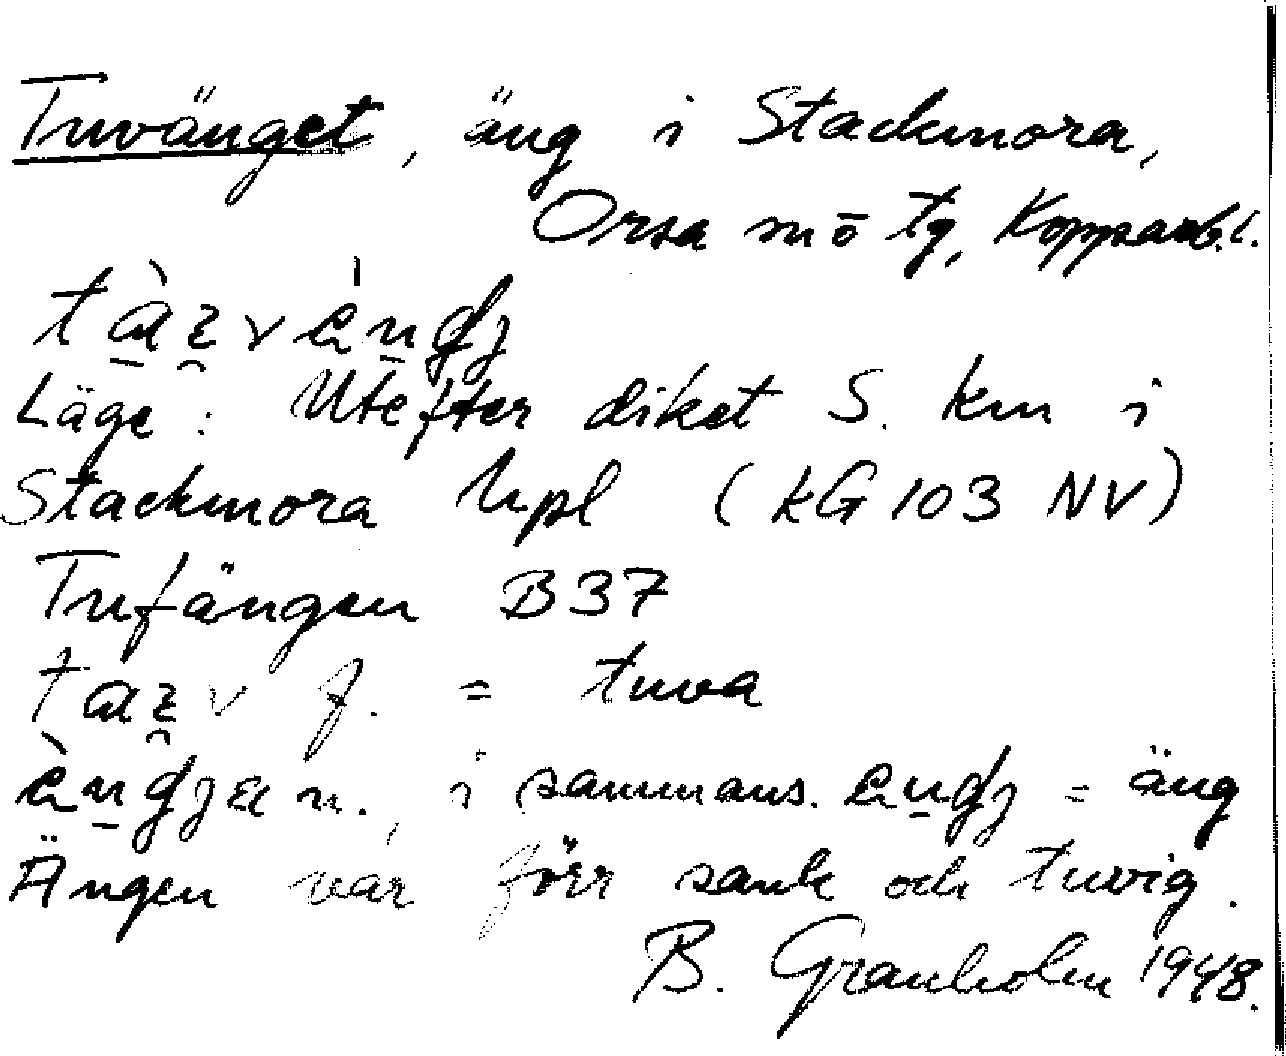 Tuvänget, äng i Stackmora,
Orsa sn o tg, Kopparb.l.
Läge: Utefter diket S. km i
Stackmora hpl (KG 103 NV)
Tufängen B37
f. = tuva
n., i sammans. = äng
Ängen var förr sank och tuvig.
B. Granholm 1948.